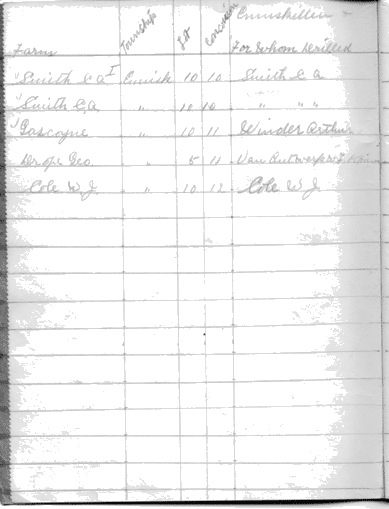 Enniskillen
Farm Township Lot Concession For Whom Drilled
" Smith E A I Ennisk 10 10 Smith E A
" Smith E.A. " 10 10 " " "
" Gascoyne " 10 11 Winder Arthur
Drope Geo. " 5 11
Cole W J " 10 12 Cole W J